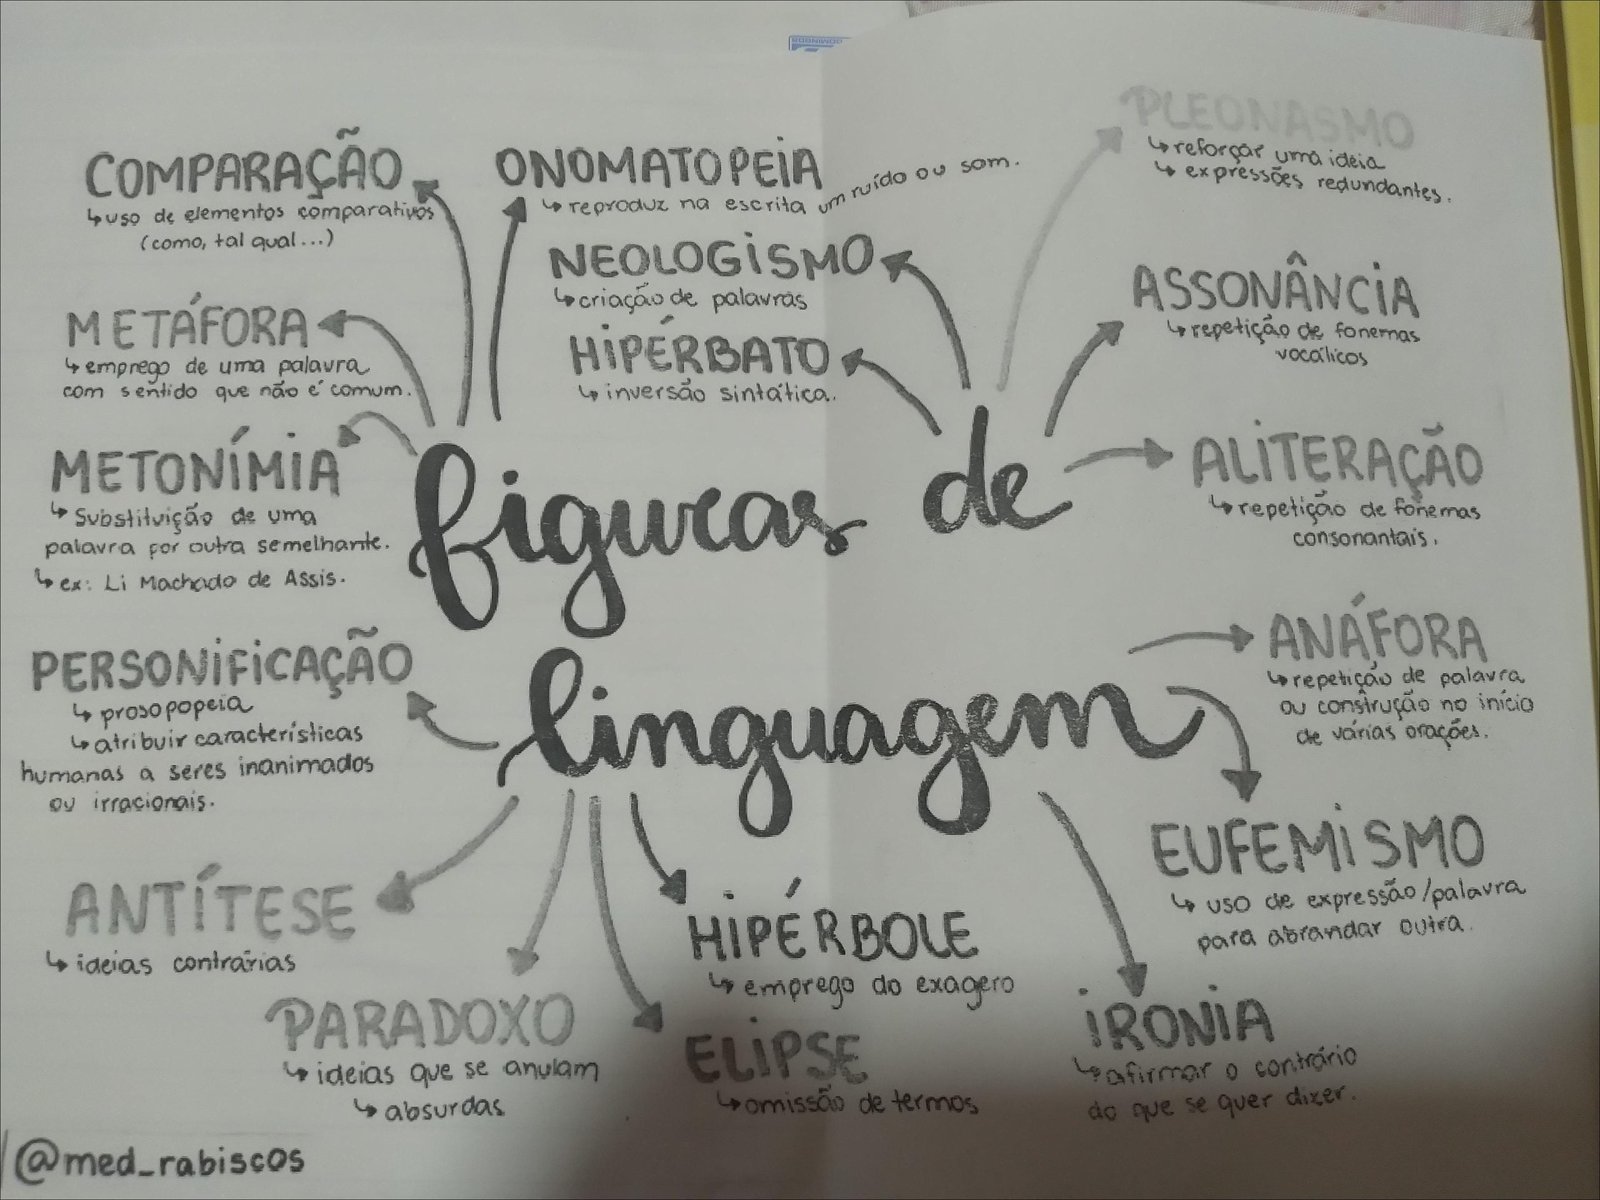 COMPARAÇÃO
↳ uso de elementos comparativos
(como, tal qual...)
METÁFORA
↳ emprego de uma palavra
com sentido que não é comum.
METONÍMIA
↳ Substituição de uma
palavra por outra semelhante.
↳ ex: Li Machado de Assis.
PERSONIFICAÇÃO
↳ prosopopeia
↳ atribuir características
humanas a seres inanimados
ou irracionais.
ANTÍTESE
↳ ideias contrárias
PARADOXO
↳ ideias que se anulam
↳ absurdas
ONOMATOPEIA
↳ reproduz na escrita um ruído ou som.
NEOLOGISMO
↳ criação de palavras
HIPÉRBATO
↳ inversão sintática.
figuras de
linguagem
HIPÉRBOLE
↳ emprego do exagero
ELIPSE
↳ omissão de termos
PLEONASMO
↳ reforçar uma ideia
↳ expressões redundantes.
ASSONÂNCIA
↳ repetição de fonemas
vocálicos
ALITERAÇÃO
↳ repetição de fonemas
consonantais.
ANÁFORA
↳ repetição de palavra
ou construção no início
de várias orações.
EUFEMISMO
↳ uso de expressão/palavra
para abrandar outra.
IRONIA
↳ afirmar o contrário
do que se quer dizer.
@med_rabiscos